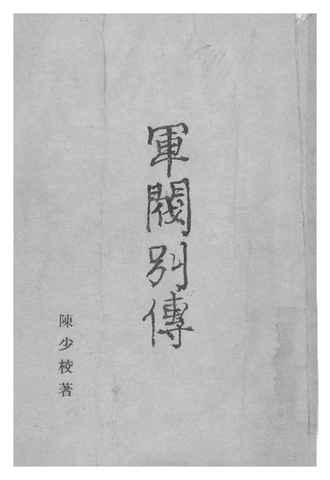 軍閥別傳
陳少校著